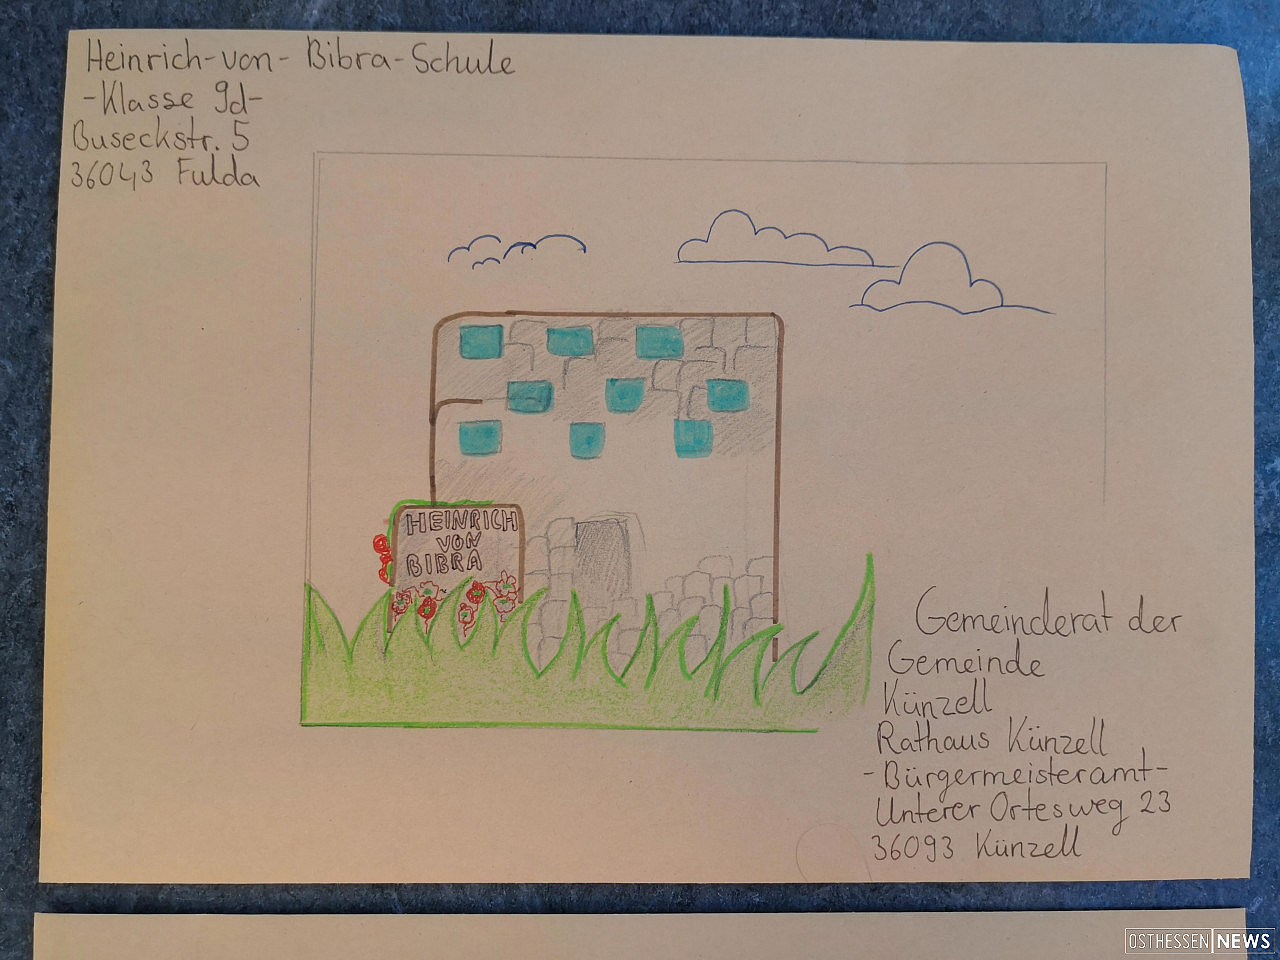 Heinrich-von-Bibra-Schule
-Klasse 9d-
Buseckstr. 5
36043 Fulda
HEINRICH
VON
BIBRA
Gemeinderat der
Gemeinde
Künzell
Rathaus Künzell
-Bürgermeisteramt-
Unterer Ortesweg 23
36093 Künzell
OSTHESSEN|NEWS